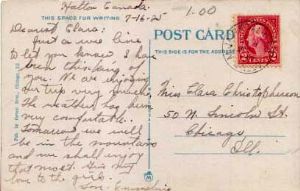 Hatton Canada.
THIS SPACE FOR WRITING
7-16-25
1-00
POST CARD
THIS SIDE IS FOR THE ADDRESS
Dearest Clara:
Just a line
to let you know I have
this far
you. We are enjoying
our trip very much.
The weather has been
very comfortable.
tomorrow we will
be in the mountains
and we shall enjoy
that most.
love to the girls.
Miss Clara Christopherson
50 N. Lincoln St.
Chicago
Ill.
2 CENTS 2